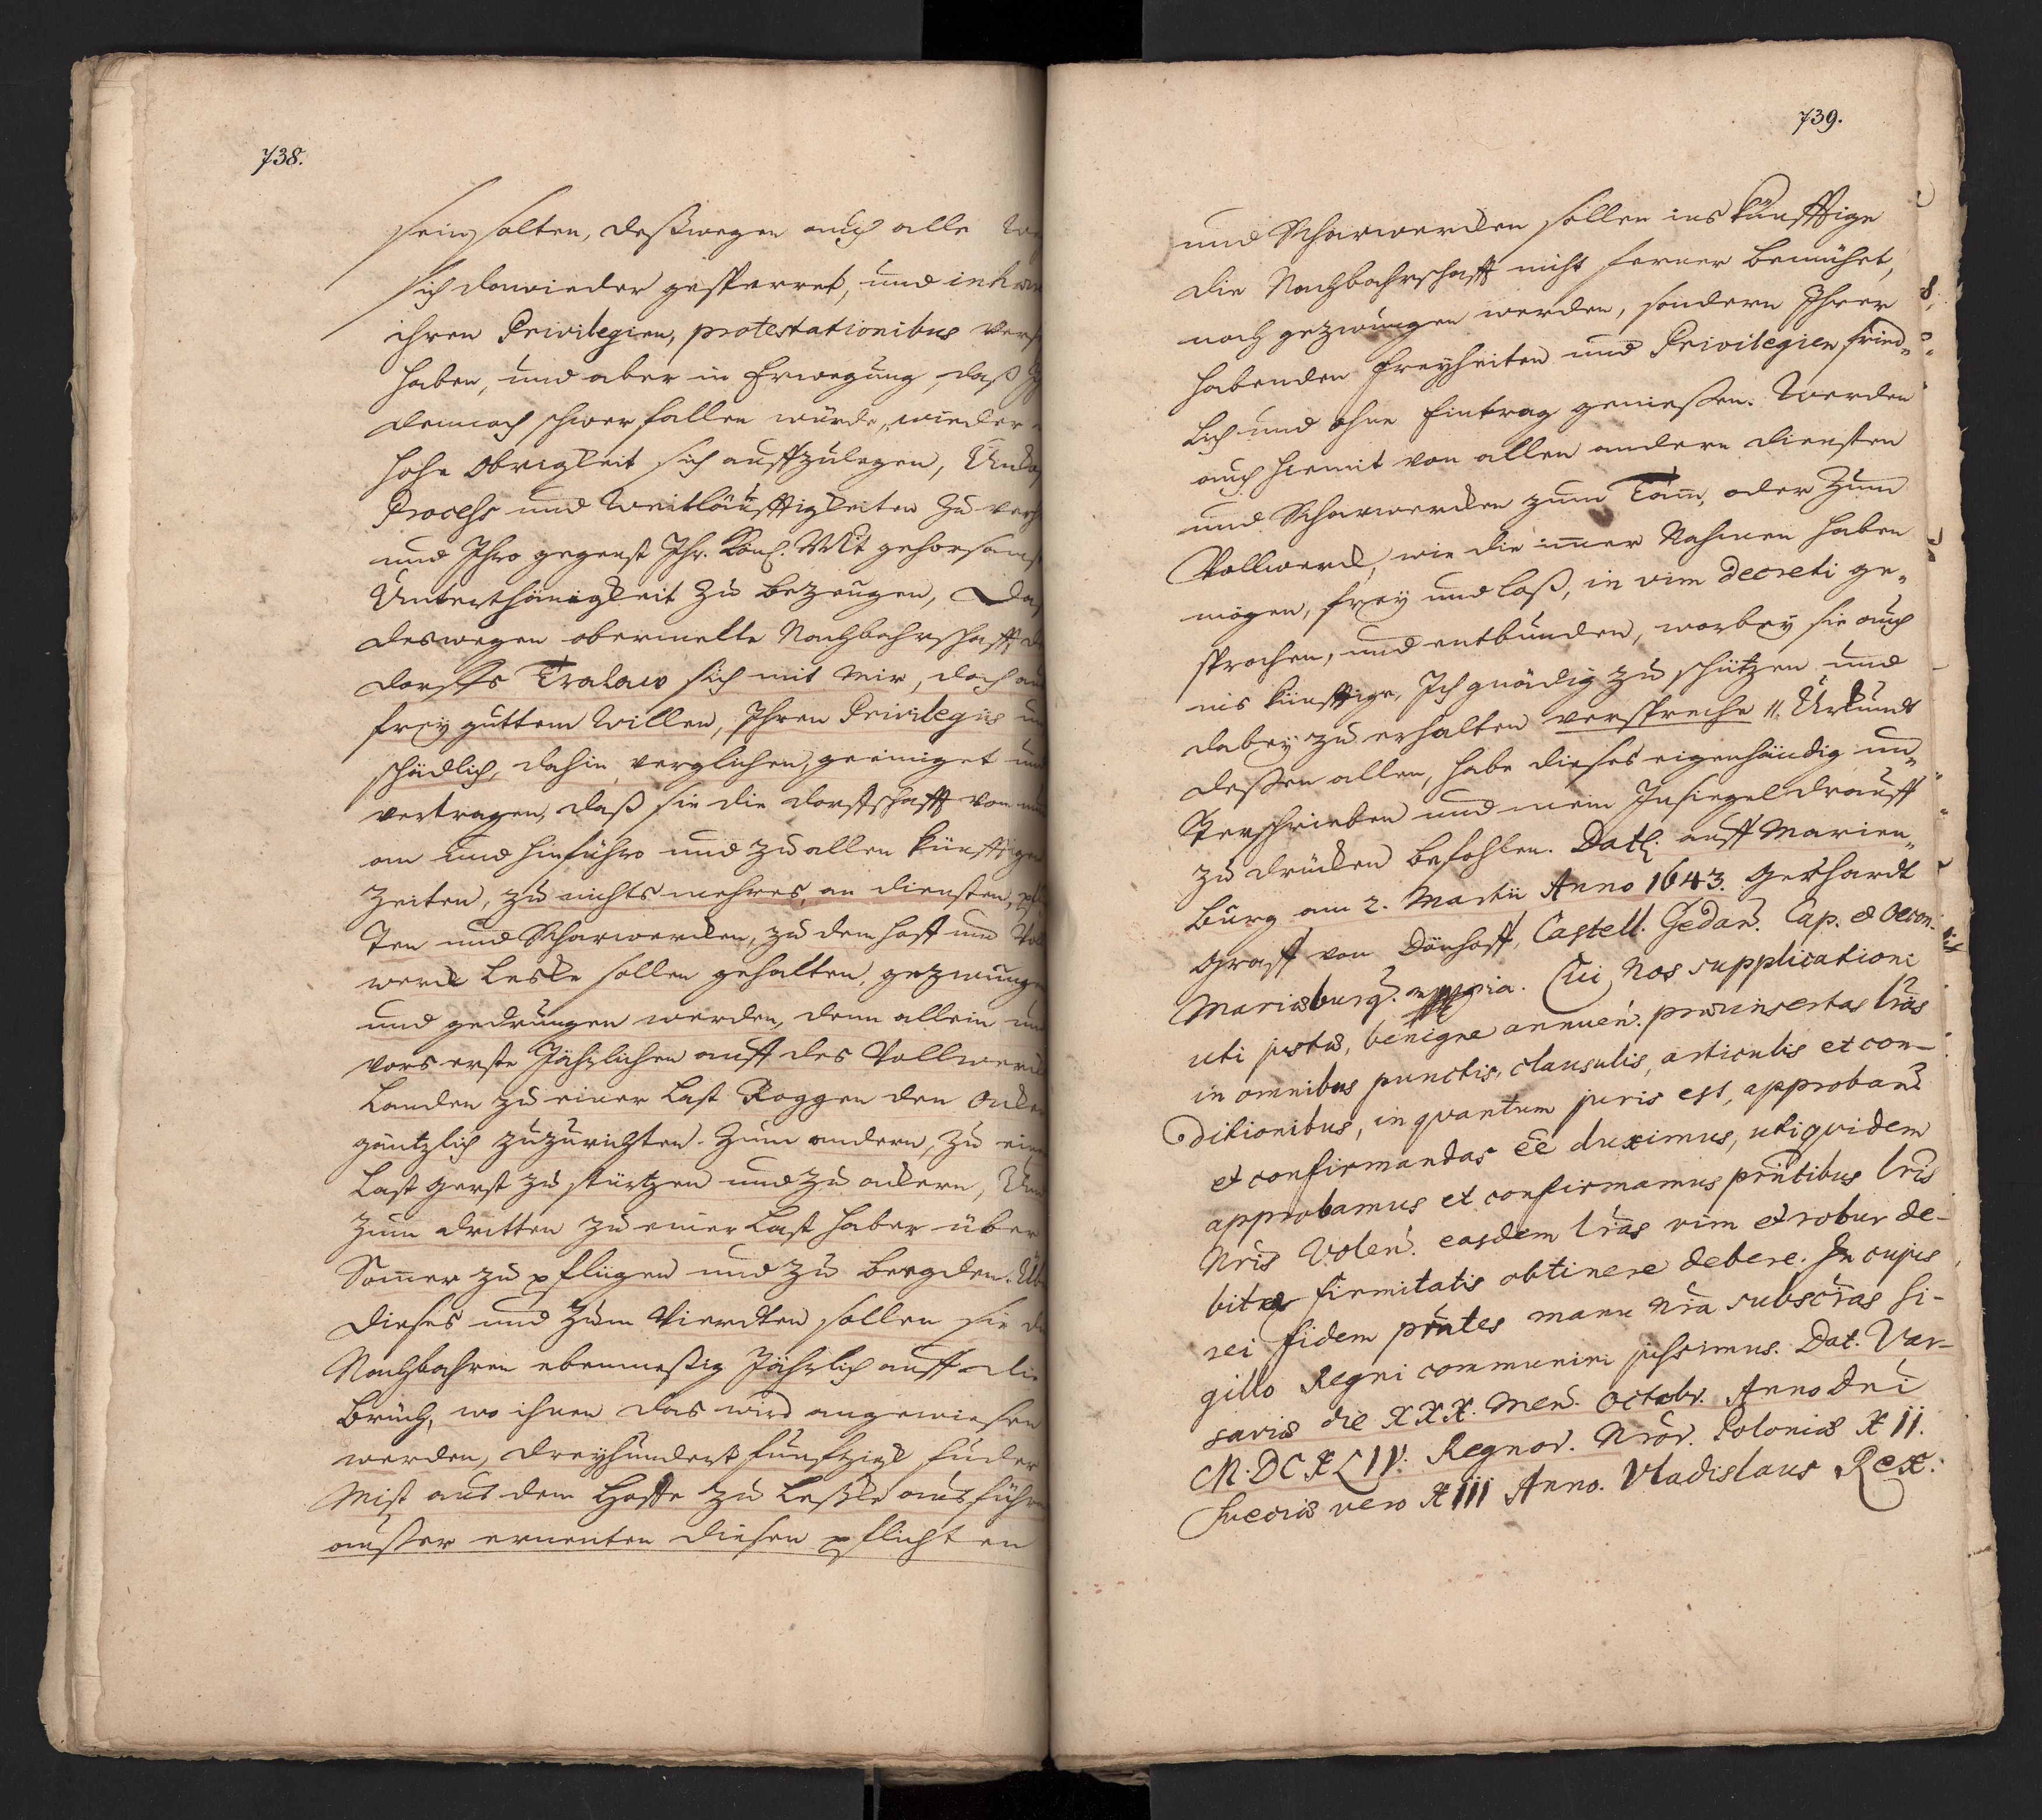 738.
sein solten, deßwegen auch alle
sich dawieder gesperret, und
ihren Privilegien, protestationibus
haben, und aber in Erwegung, daß
dennoch schwer fallen würde, wieder
hohe Obrigkeit sich auffzulegen,
Process und Weitläufftigkeiten zu
und Ihro gegenst Ihr. Königl. Mtt gehorsamst
Unterthänigkeit zu bezeugen,
deswegen obermelte Nachbahrschafft
dorffs Tralaw sich mit mir, doch aus
frey guttem Willen, Ihren Privilegiis un
schädlich, dahin verglichen, geeiniget und
vertragen, daß sie die dorffschafft von nun
an und hinführo und zu allen künfftigen
Zeiten, zu nichts mehres, an diensten,
ten und Scharwercken, zu dem hoff und
werck Leske sollen gehalten, gezwungen
und gedrungen werden, denn allein
vors erste Jährlichen auff des Vollwercks
Landen zu einer Last Roggen den
gäntzlich zuzurichten. Zum andern, zu einer
Last gerst zu stürtzen und zu ackern,
zum dritten zu einer Last haber über
Som̃er zu pflügen und zu
dieses und zum Vierdten sollen sie
Nachbahren ebenmeßig Jährlich auff die
Brüch, wo ihnen das wird angewiesen
werden, dreyhundert funftzigk fuder
Mist aus dem Hoffe zu Leßke ausführen
ausser ernenten diesen pflichten
739.
und Scharwercken sollen ins künfftige
die Nachbahrschafft nicht ferner bemühet,
noch gezwungen werden, sondern Ihrer
habenden Freyheiten und Privilegien fried„
lich und ohne Eintrag genießen. Werden
auch hiemit von allen andern diensten
und Scharwercken zum Tam̃, oder zum
Vollwerck, wie die im̃er Nahmen haben
mögen, frey und loß, in vim decreti ge„
sprochen, und entbunden, worbey sie auch
ins künfftige, Ich gnädig zu schützen und
dabey zu erhalten verspreche. Urkundt
deßen allen, habe dieses eigenhändig un„
terschrieben und mein Insiegel drauff
zu drücken befohlen. Datũ auff Marien„
burg am 2. Martii Anno 1643. Gerhardt
Graff von Dönhoff, Castell. Gedan. Cap. et Oecon.
Mariæburg. mppria. Cui Nos supplicationi
uti justæ, benigne annuen. præinsertas lr̃as
in omnibus punctis, clausulis, articulis et con-
ditionibus, in qvantum juris est, approband
et confirmandas ee͂ duximus, utiqvidem
approbamus et confirmamus prñtibus lris
Nris Volen. easdem lr̃as vim et robur de-
bitæ firmitatis obtinere debere. In cujus
rei fidem prñtes manu nr̃a subscr̃as si-
gillo Regni communiri jussimus. Dat. Var-
saviæ die XXX. Men. Octobr. Anno Dni
M.DC.XLIV. Regnor. Nror. Poloniæ XII.
Sueciæ vero XIII Anno. Vladislaus Rex.